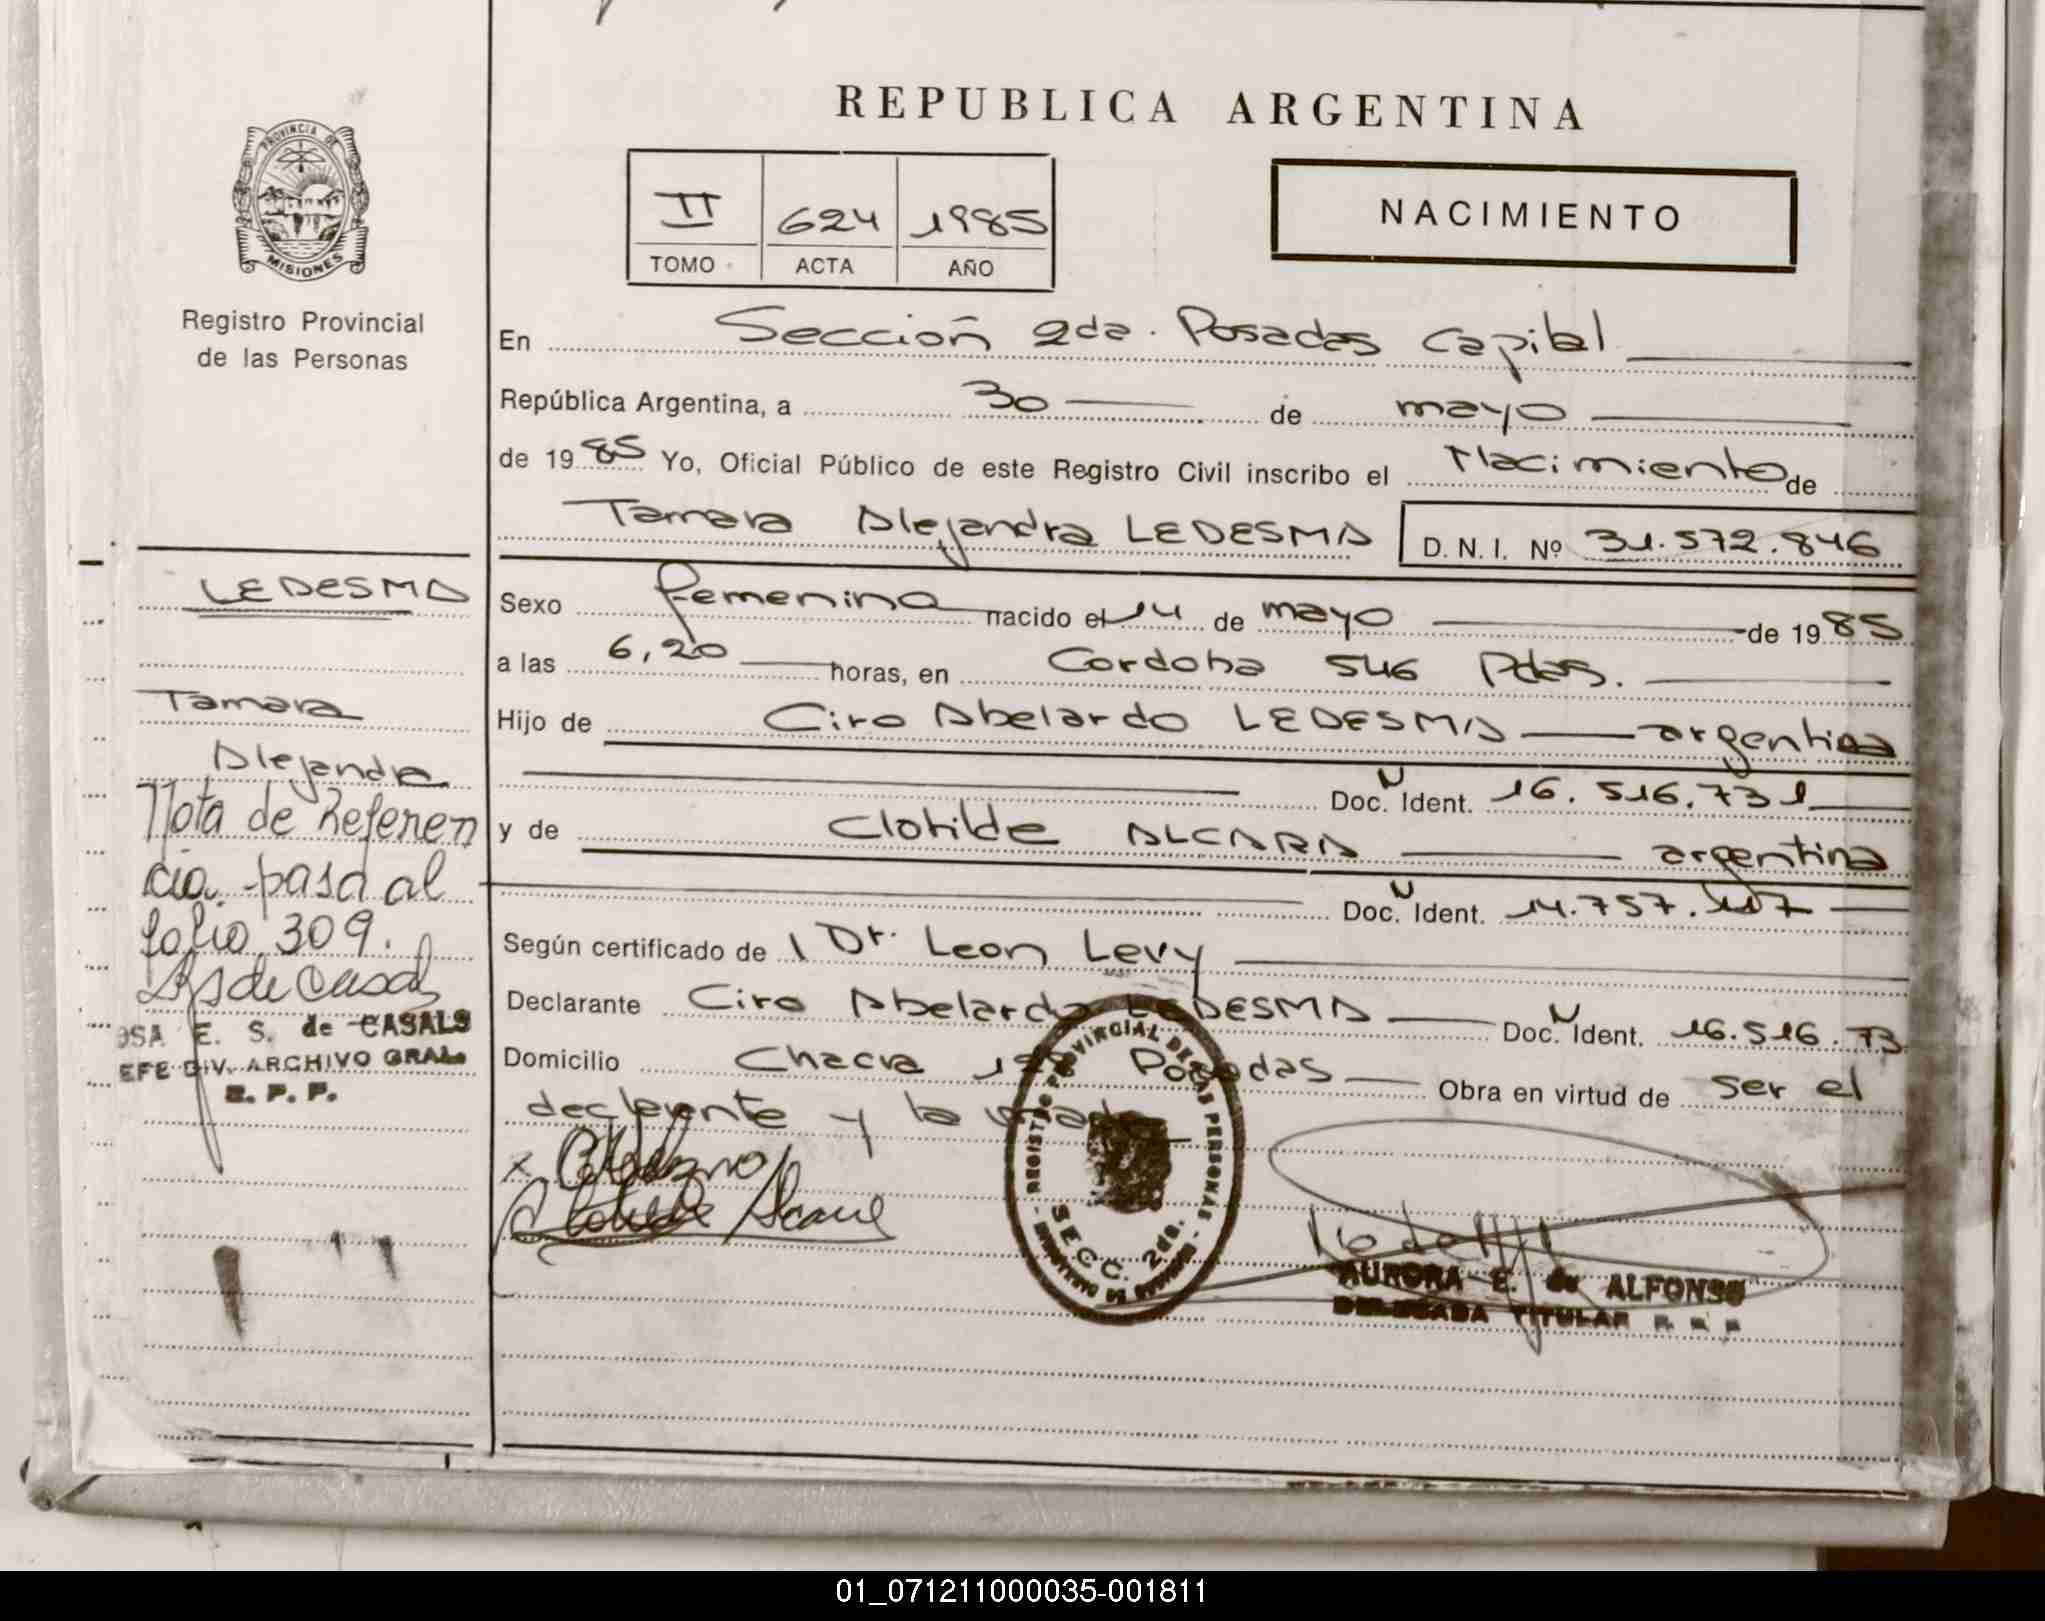 REPUBLICA ARGENTINA
PROVINCIA DE
MISIONES
Registro Provincial
de las Personas
II 624 1985
TOMO ACTA AÑO
NACIMIENTO
En Sección 2da. Posadas Capital
República Argentina, a 30 de mayo
de 1985 Yo, Oficial Público de este Registro Civil inscribo el Nacimiento de
Tamara Alejandra LEDESMA D. N. I. Nº 31.572.846
Sexo femenino nacido el 14 de mayo de 1985
a las 6,20 horas, en Cordoba 546 Pdas.
Hijo de Ciro Abelardo LEDESMA argentino
Doc. N Ident. 16.516.731
y de Clotilde ALCARA argentina
Doc. N Ident. 14.757.117
Según certificado de l Dr. Leon Levy
Declarante Ciro Abelardo LEDESMA Doc. N Ident. 16.516.73
Domicilio Chacra Posadas Obra en virtud de ser el
declarante y la
LEDESMA
Tamara
Alejandra
Nota de Referen
cia pasa al
folio 309.
OSA E. S. de CASALS
EFE DIV. ARCHIVO GRAL.
R. P. P.
REGISTRO PROVINCIAL DE LAS PERSONAS
SECC. 2da.
AURORA E. de ALFONSO
DELEGADA TITULAR R. P. P.
01_071211000035-001811